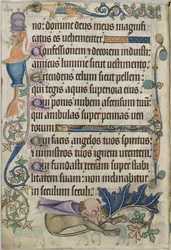 no: domine deus meus magnifi
catus es uehementer.
Confessionem et decorem induisti:
amictus lumine sicut uestimento.
Extendens celum sicut pellem:
qui tegis aquis superiora eius.
Qui ponis nubem ascensum tuum:
qui ambulas super pennas uen
torum
Qui facis angelos tuos spiritus:
ministros tuos ignem urentem.
Qui fundasti terram super stabi
litatem suam: non inclinabitur
in seculum seculi.